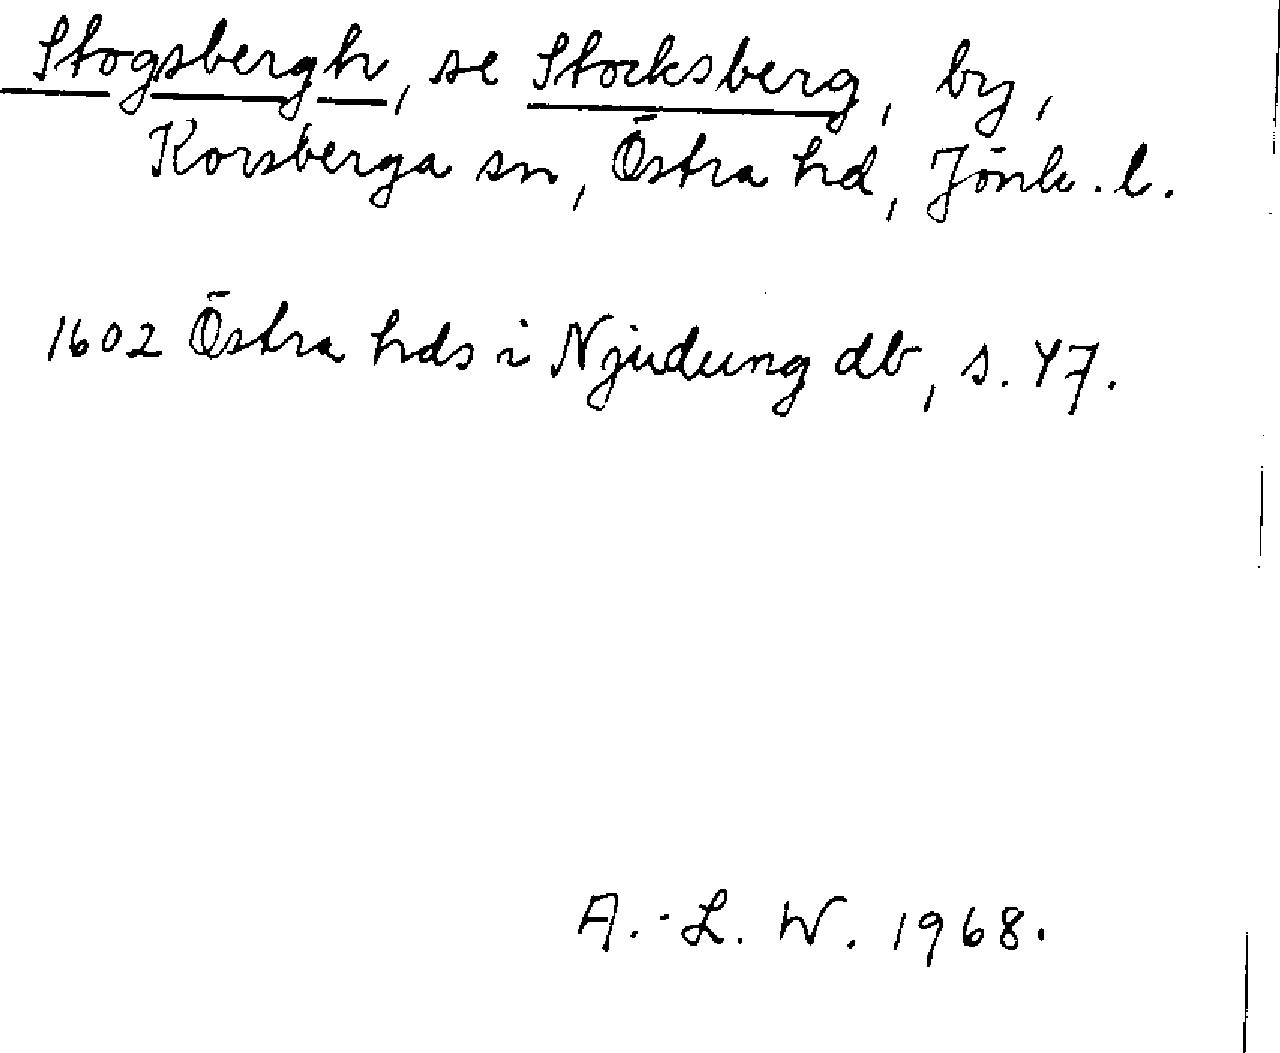 Stogsbergh, se Stocksberg, by,
Korsberga sn, Östra hd, Jönk. l.
1602 Östra hds i Njudung db, s. 47.
A.-L. W. 1968.